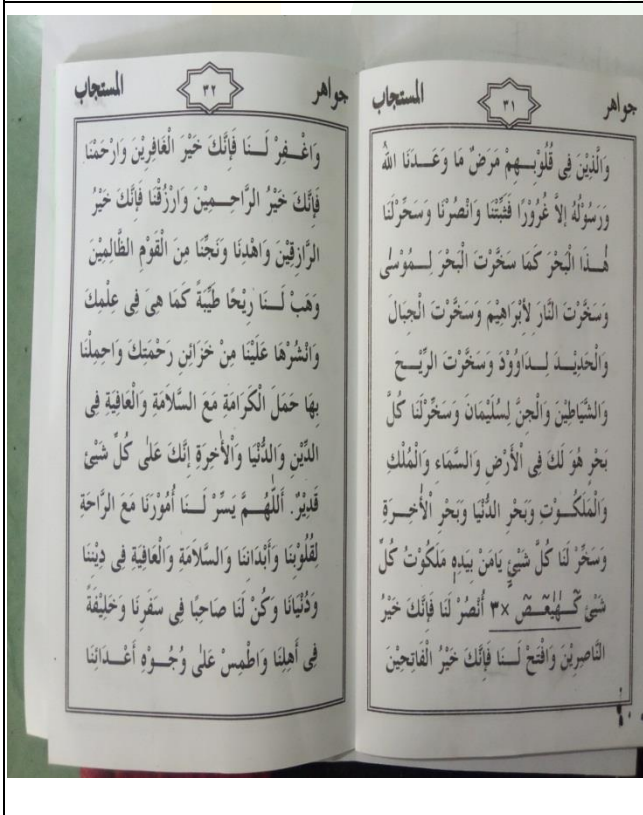 جواهر ٣١ المستجاب
وَالَّذِيْنَ فِى قُلُوْبِهِمْ مَرَضٌ مَا وَعَدَنَا اللهُ
وَرَسُوْلُهُ إِلاَّ غُرُوْرًا فَثَبِّتْنَا وَانْصُرْنَا وَسَخِّرْلَنَا
هٰذَا الْبَحْرَ كَمَا سَخَّرْتَ الْبَحْرَ لِمُوْسٰى
وَسَخَّرْتَ النَّارَ لأِبْرَاهِيْمَ وَسَخَّرْتَ الْجِبَالَ
وَالْحَدِيْدَ لِدَاوُوْدَ وَسَخَّرْتَ الرِّيْحَ
وَالشَّيَاطِيْنَ وَالْجِنَّ لِسُلَيْمَانَ وَسَخِّرْلَنَا كُلَّ
بَحْرٍ هُوَ لَكَ فِى الْأَرْضِ وَالسَّمَاءِ وَالْمُلْكِ
وَالْمَلَكُوْتِ وَبَحْرَ الدُّنْيَا وَبَحْرَ الْأُخِرَةِ
وَسَخِّرْ لَنَا كُلَّ شَيْئٍ يَامَنْ بِيَدِهِ مَلَكُوْتُ كُلِّ
شَيْئٍ كٓهٰيٰعٓصٓ ×٣ أُنْصُرْ لَنَا فَإِنَّكَ خَيْرُ
النَّاصِرِيْنَ وَافْتَحْ لَنَا فَإِنَّكَ خَيْرُ الْفَاتِحِيْنَ
جواهر ٣٢ المستجاب
وَاغْفِرْ لَنَا فَإِنَّكَ خَيْرَ الْغَافِرِيْنَ وَارْحَمْنَا
فَإِنَّكَ خَيْرُ الرَّاحِمِيْنَ وَارْزُقْنَا فَإِنَّكَ خَيْرُ
الرَّازِقِيْنَ وَاهْدِنَا وَنَجِّنَا مِنَ الْقَوْمِ الظَّالِمِيْنَ
وَهَبْ لَنَا رِيْحًا طَيِّبَةً كَمَا هِىَ فِى عِلْمِكَ
وَانْشُرْهَا عَلَيْنَا مِنْ خَزَائِنِ رَحْمَتِكَ وَاحْمِلْنَا
بِهَا حَمَلَ الْكَرَامَةِ مَعَ السَّلاَمَةِ وَالْعَافِيَةِ فِى
الدِّيْنِ وَالدُّنْيَا وَالْأَخِرَةِ إِنَّكَ عَلٰى كُلِّ شَيْئٍ
قَدِيْرٌ. أَللّٰهُمَّ يَسِّرْ لَنَا أُمُوْرَنَا مَعَ الرَّاحَةِ
لِقُلُوْبِنَا وَأَبْدَانِنَا وَالسَّلاَمَةِ وَالْعَافِيَةِ فِى دِيْنِنَا
وَدُنْيَانَا وَكُنْ لَنَا صَاحِبًا فِى سَفَرِنَا وَخَلِيْفَةً
فِى أَهْلِنَا وَاطْمِسْ عَلٰى وُجُوْهِ أَعْدَائِنَا